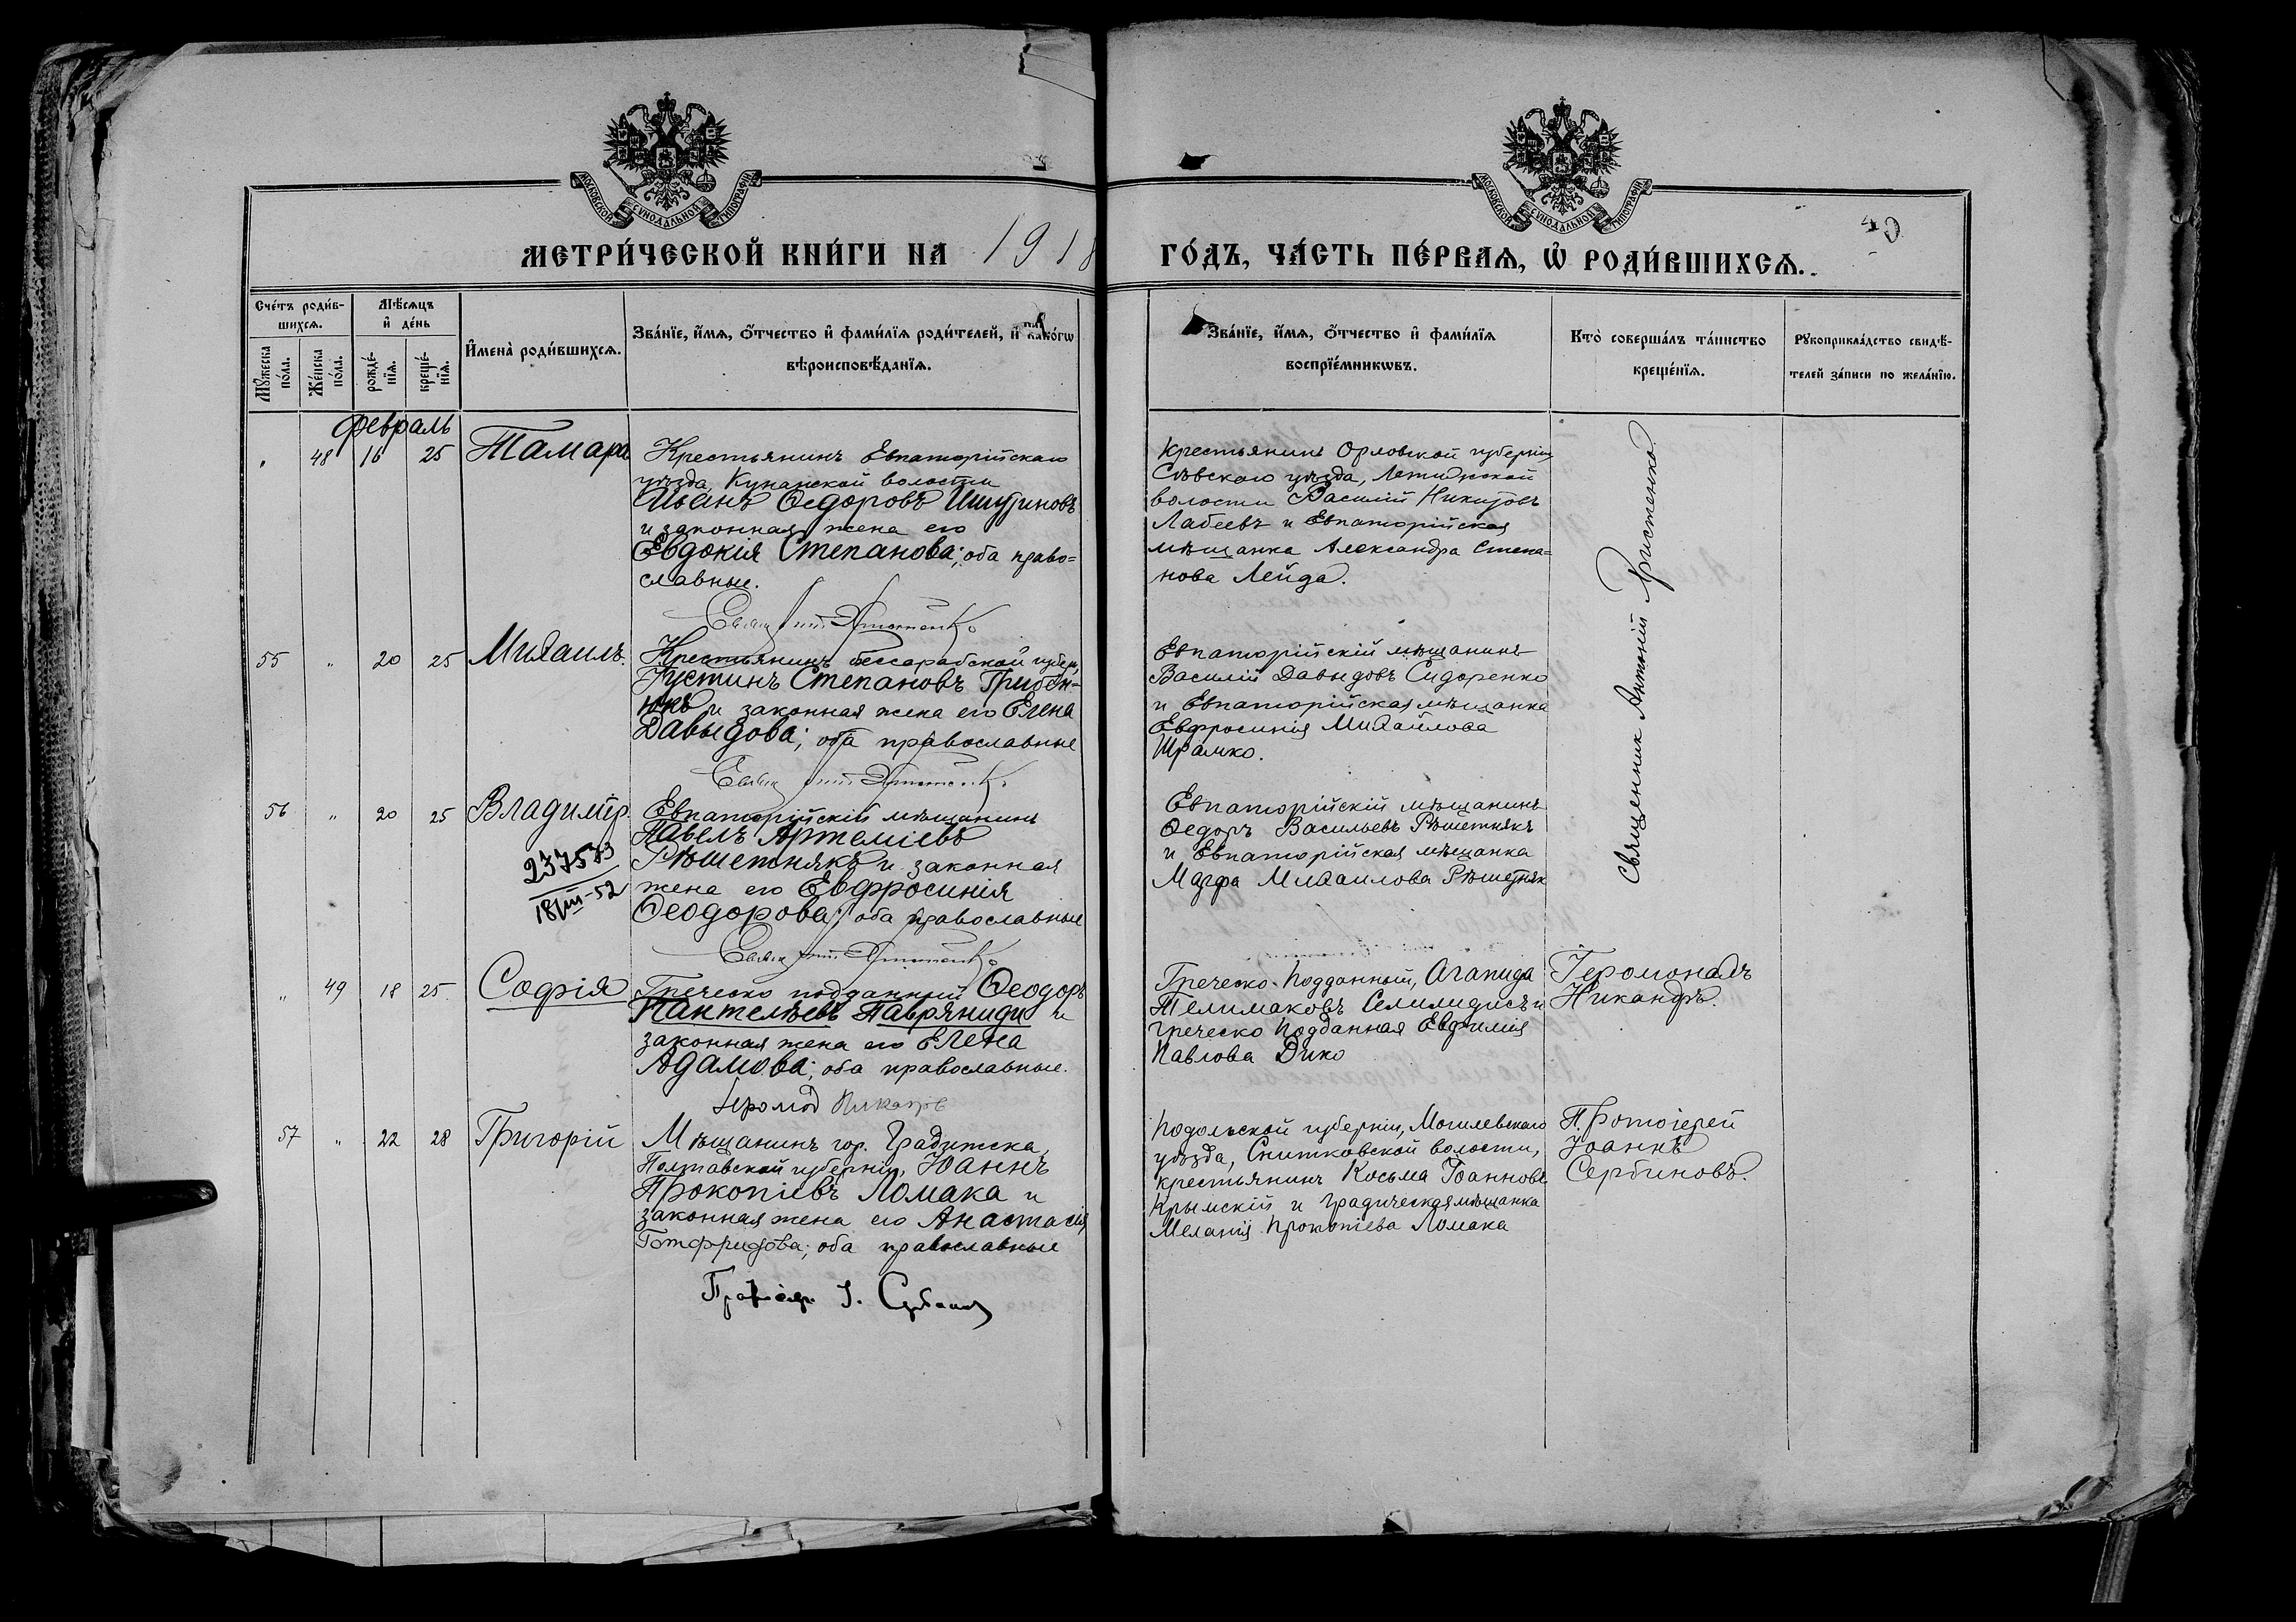 МОСКОВСКОЙ СѴНОДАЛЬНОЙ ТИПОГРАФІИ
МОСКОВСКОЙ СѴНОДАЛЬНОЙ ТИПОГРАФІИ
МЕТРИ́ЧЕСКОЙ КНИ́ГИ НА 1918
ГО́ДЪ, ЧА́СТЬ ПЕ́РВАѦ, Ѡ҆ РОДИ́ВШИХСѦ.
Сче́тъ роди́в-
шихсѧ.
Мꙋ́жеска по́ла.
Же́нска по́ла.
Мѣ́сѧцъ
и҆ де́нь
рожде́-
нїѧ.
креще́-
нїѧ.
И҆мена̀ роди́вшихсѧ.
Зва́нїе, и҆́мѧ, ѻ҆́тчество и҆ фами́лїѧ роди́телей, и҆ како́гѡ
вѣроисповѣ́данїѧ.
Зва́нїе, и҆́мѧ, ѻ҆́тчество и҆ фами́лїѧ
воспрїе́мникѡвъ.
Кто̀ соверша́лъ та́инство
креще́нїѧ.
Рꙋкоприкла́дство свидѣ́-
телей за́писи по жела́нїю.
Февраль
" 48 16 25 Тамара
Крестьянинъ Евпаторійскаго
уѣзда, Кунанской волости
Иванъ Ѳедоровъ Ишутиновъ
и законная жена его
Евдокія Степанова; оба право=
славные.
Крестьянинъ Орловской губерніи
Сѣвскаго уѣзда,
волости Василій Никитовъ
Лабеевъ и Евпаторійская
мѣщанка Александра Степа=
нова Лейда.
Священник Антоній Христенко
55 " 20 25 Михаилъ.
Крестьянинъ бессарабской губер.
Іустинъ Степановъ Грибен-
юкъ и законная жена его Елена
Давыдова; оба православные
Евпаторійскій мѣщанинъ
Василій Давыдовъ Сидоренко
и Евпаторійская мѣщанка
Евфросинія Михайлова
Шрамко.
56 " 20 25 Владиміръ.
237573
18/III-52
Евпаторійскій мѣщанинъ
Павелъ Артеміевъ
Рѣшетнякъ и законная
жена его Евфросинія
Ѳеодорова; оба православные
Евпаторійскій мѣщанинъ
Ѳедоръ Васильевъ Рѣшетнякъ
и Евпаторійская мѣщанка
Марфа Михаилова Рѣшетняк
" 49 18 25 Софія
Греческо подданный Ѳеодоръ
Пантелѣевъ Таврѣниди и
законная жена его Елена
Адамова; оба православные.
Греческо-подданный, Агапида
Телимаковъ Селилидисъ и
греческо подданная Евфимія
Павлова Дико
Іеромонахъ
Никандръ.
57 " 22 28 Григорій
Мѣщанинъ гор. Градижска,
Полтавской губерніи, Іоаннъ
Прокопіевъ Ломака и
законная жена его Анастасія
Готфридова; оба православные
Подольской губерніи, Могилевскаго
уѣзда, Снитковской волости,
крестьянинъ Косьма Іоанновъ
Крымскій и градижская мѣщанка
Меланія Прокопіева Ломака
Протоіерей
Іоаннъ
Сербиновъ.